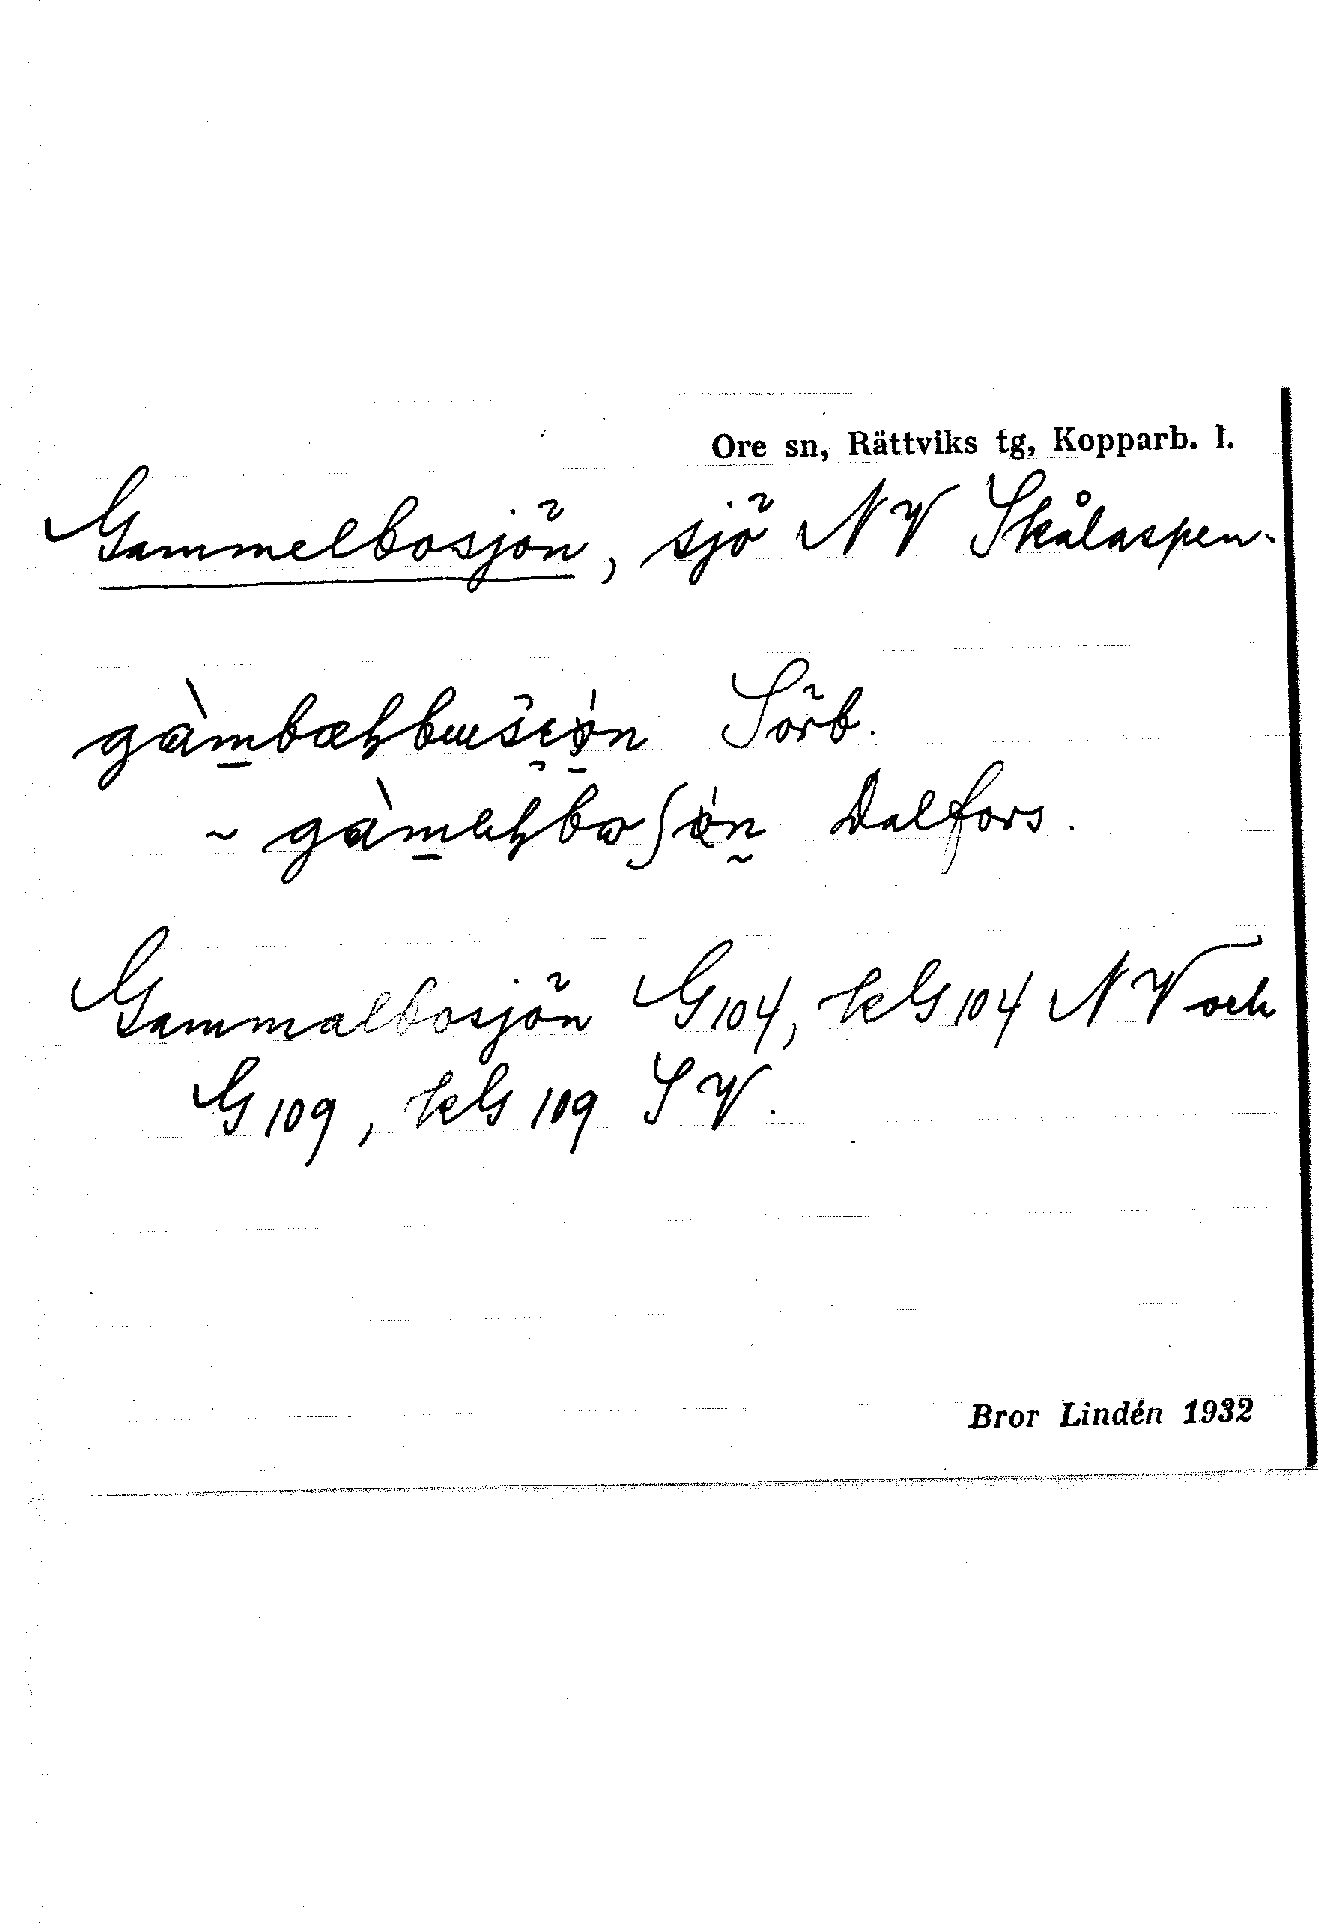 Ore sn, Rättviks tg, Kopparb. l.
Gammelbosjön, sjö NV Skålaspen.
Sörb.
~ Dalfors.
Gammalbosjön G104, kG104 NV och
G109, kG109 SV.
Bror Lindén 1932